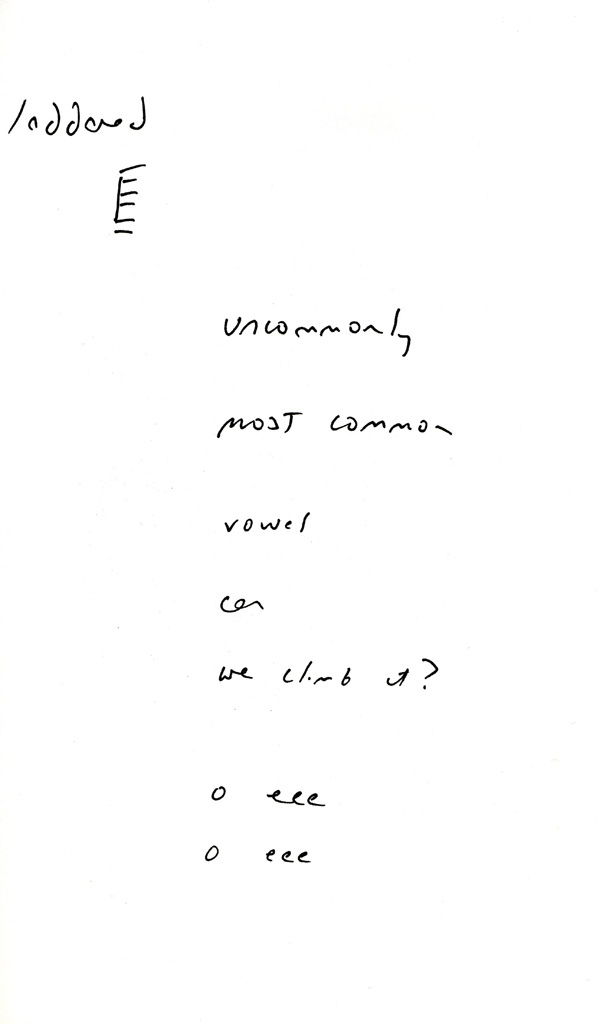 laddered
E
uncommonly
most common
vowel
can
we climb it?
o eee
o eee